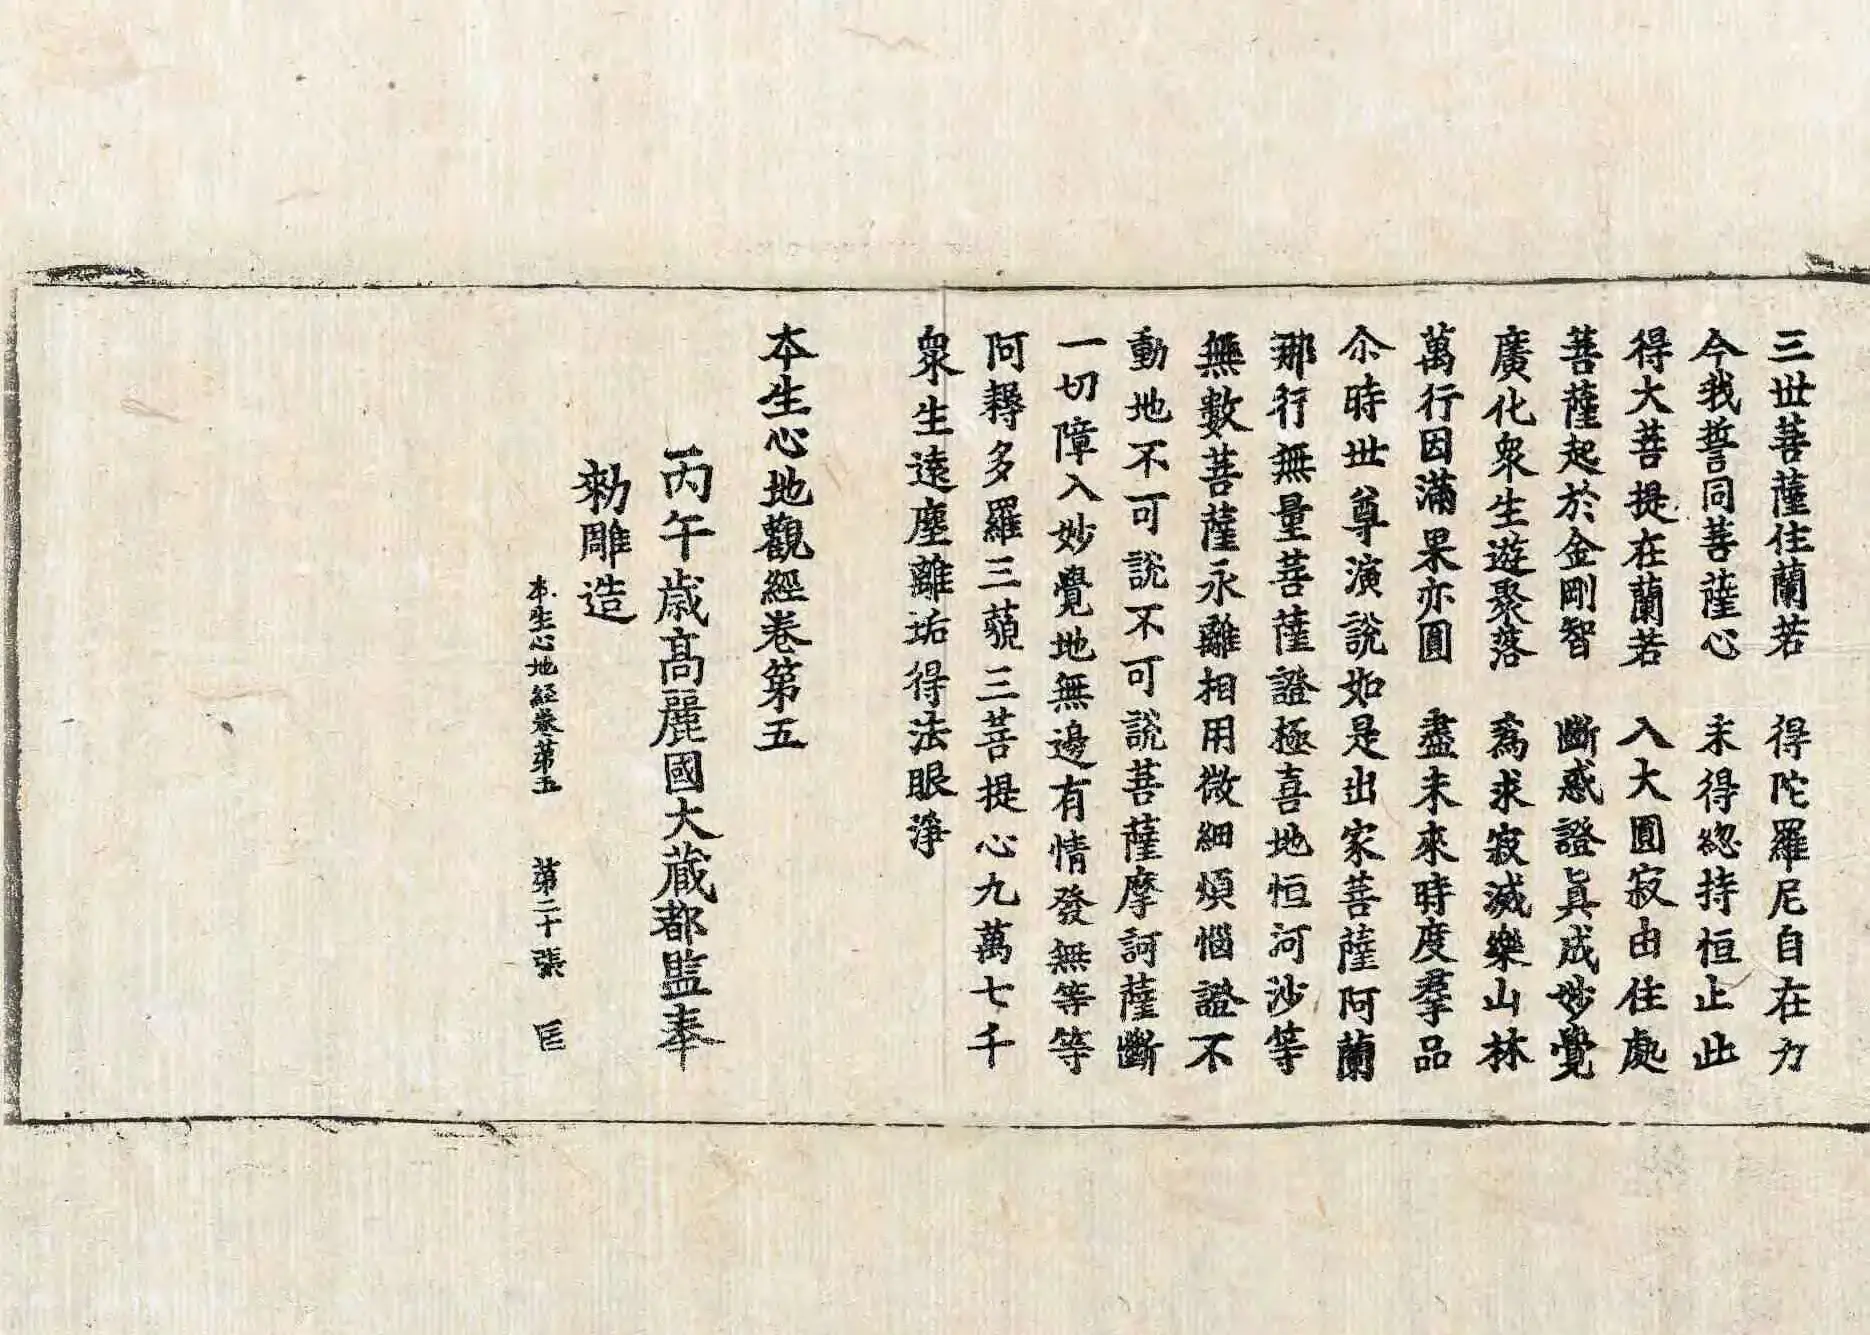 三世菩薩住蘭若　得陀羅尼自在力
今我誓同菩薩心　未得緫持恒止此
得大菩提在蘭若　入大圓寂由住處
菩薩起於金剛智　斷惑證眞成妙覺
廣化衆生遊聚落　爲求寂滅樂山林
萬行因滿果亦圓　盡未來時度羣品
尒時世尊演說如是出家菩薩阿蘭
那行無量菩薩證極喜地恒河沙等
無數菩薩永離相用微細煩惱證不
動地不可說不可說菩薩摩訶薩斷
一切障入妙覺地無邊有情發無等等
阿耨多羅三藐三菩提心九萬七千
衆生遠塵離垢得法眼淨
本生心地觀經卷第五
丙午歲高麗國大藏都監奉
勑雕造
本生心地經卷第五　第二十張　匡